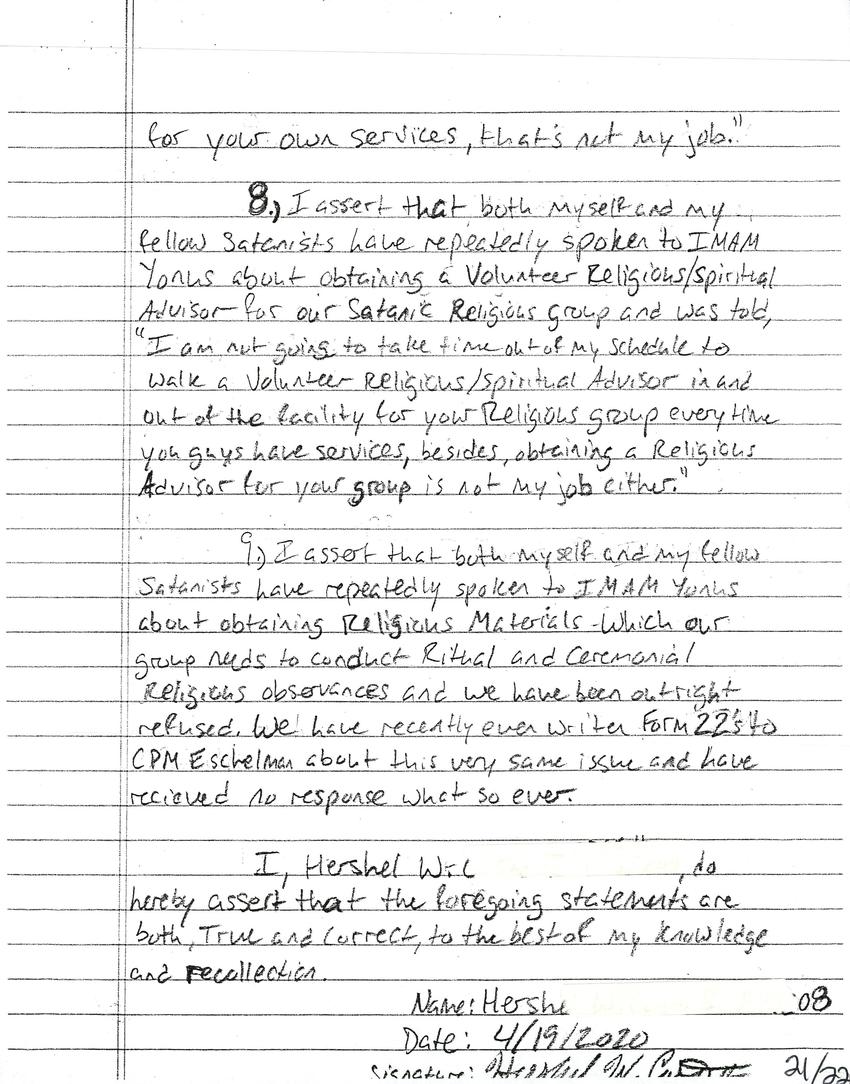 for your own services, that's not my job."
8.) I assert that both myself and my
fellow Satanists have repeatedly spoken to IMAM
Yonus about obtaining a Volunteer Religious/Spiritual
Advisor for our Satanic Religious group and was told,
"I am not going to take time out of my schedule to
walk a Volunteer Religious/Spiritual Advisor in and
out of the facility for your Religious group everytime
you guys have services, besides, obtaining a Religious
Advisor for your group is not my job either."
9.) I assert that both myself and my fellow
Satanists have repeatedly spoken to IMAM Yonus
about obtaining Religious Materials - Which our
group needs to conduct Ritual and Ceremonial
Religious observances and we have been outright
refused. We have recently even writen Form 22's to
CPM Eschelman about this very same issue and have
recieved no response what so ever.
I, Hershel W. C , do
hereby assert that the foregoing statements are
both, True and Correct, to the best of my knowledge
and recollection.
Name: Hershe 08
Date: 4/19/2020
Signature: Hershel W. 21/22